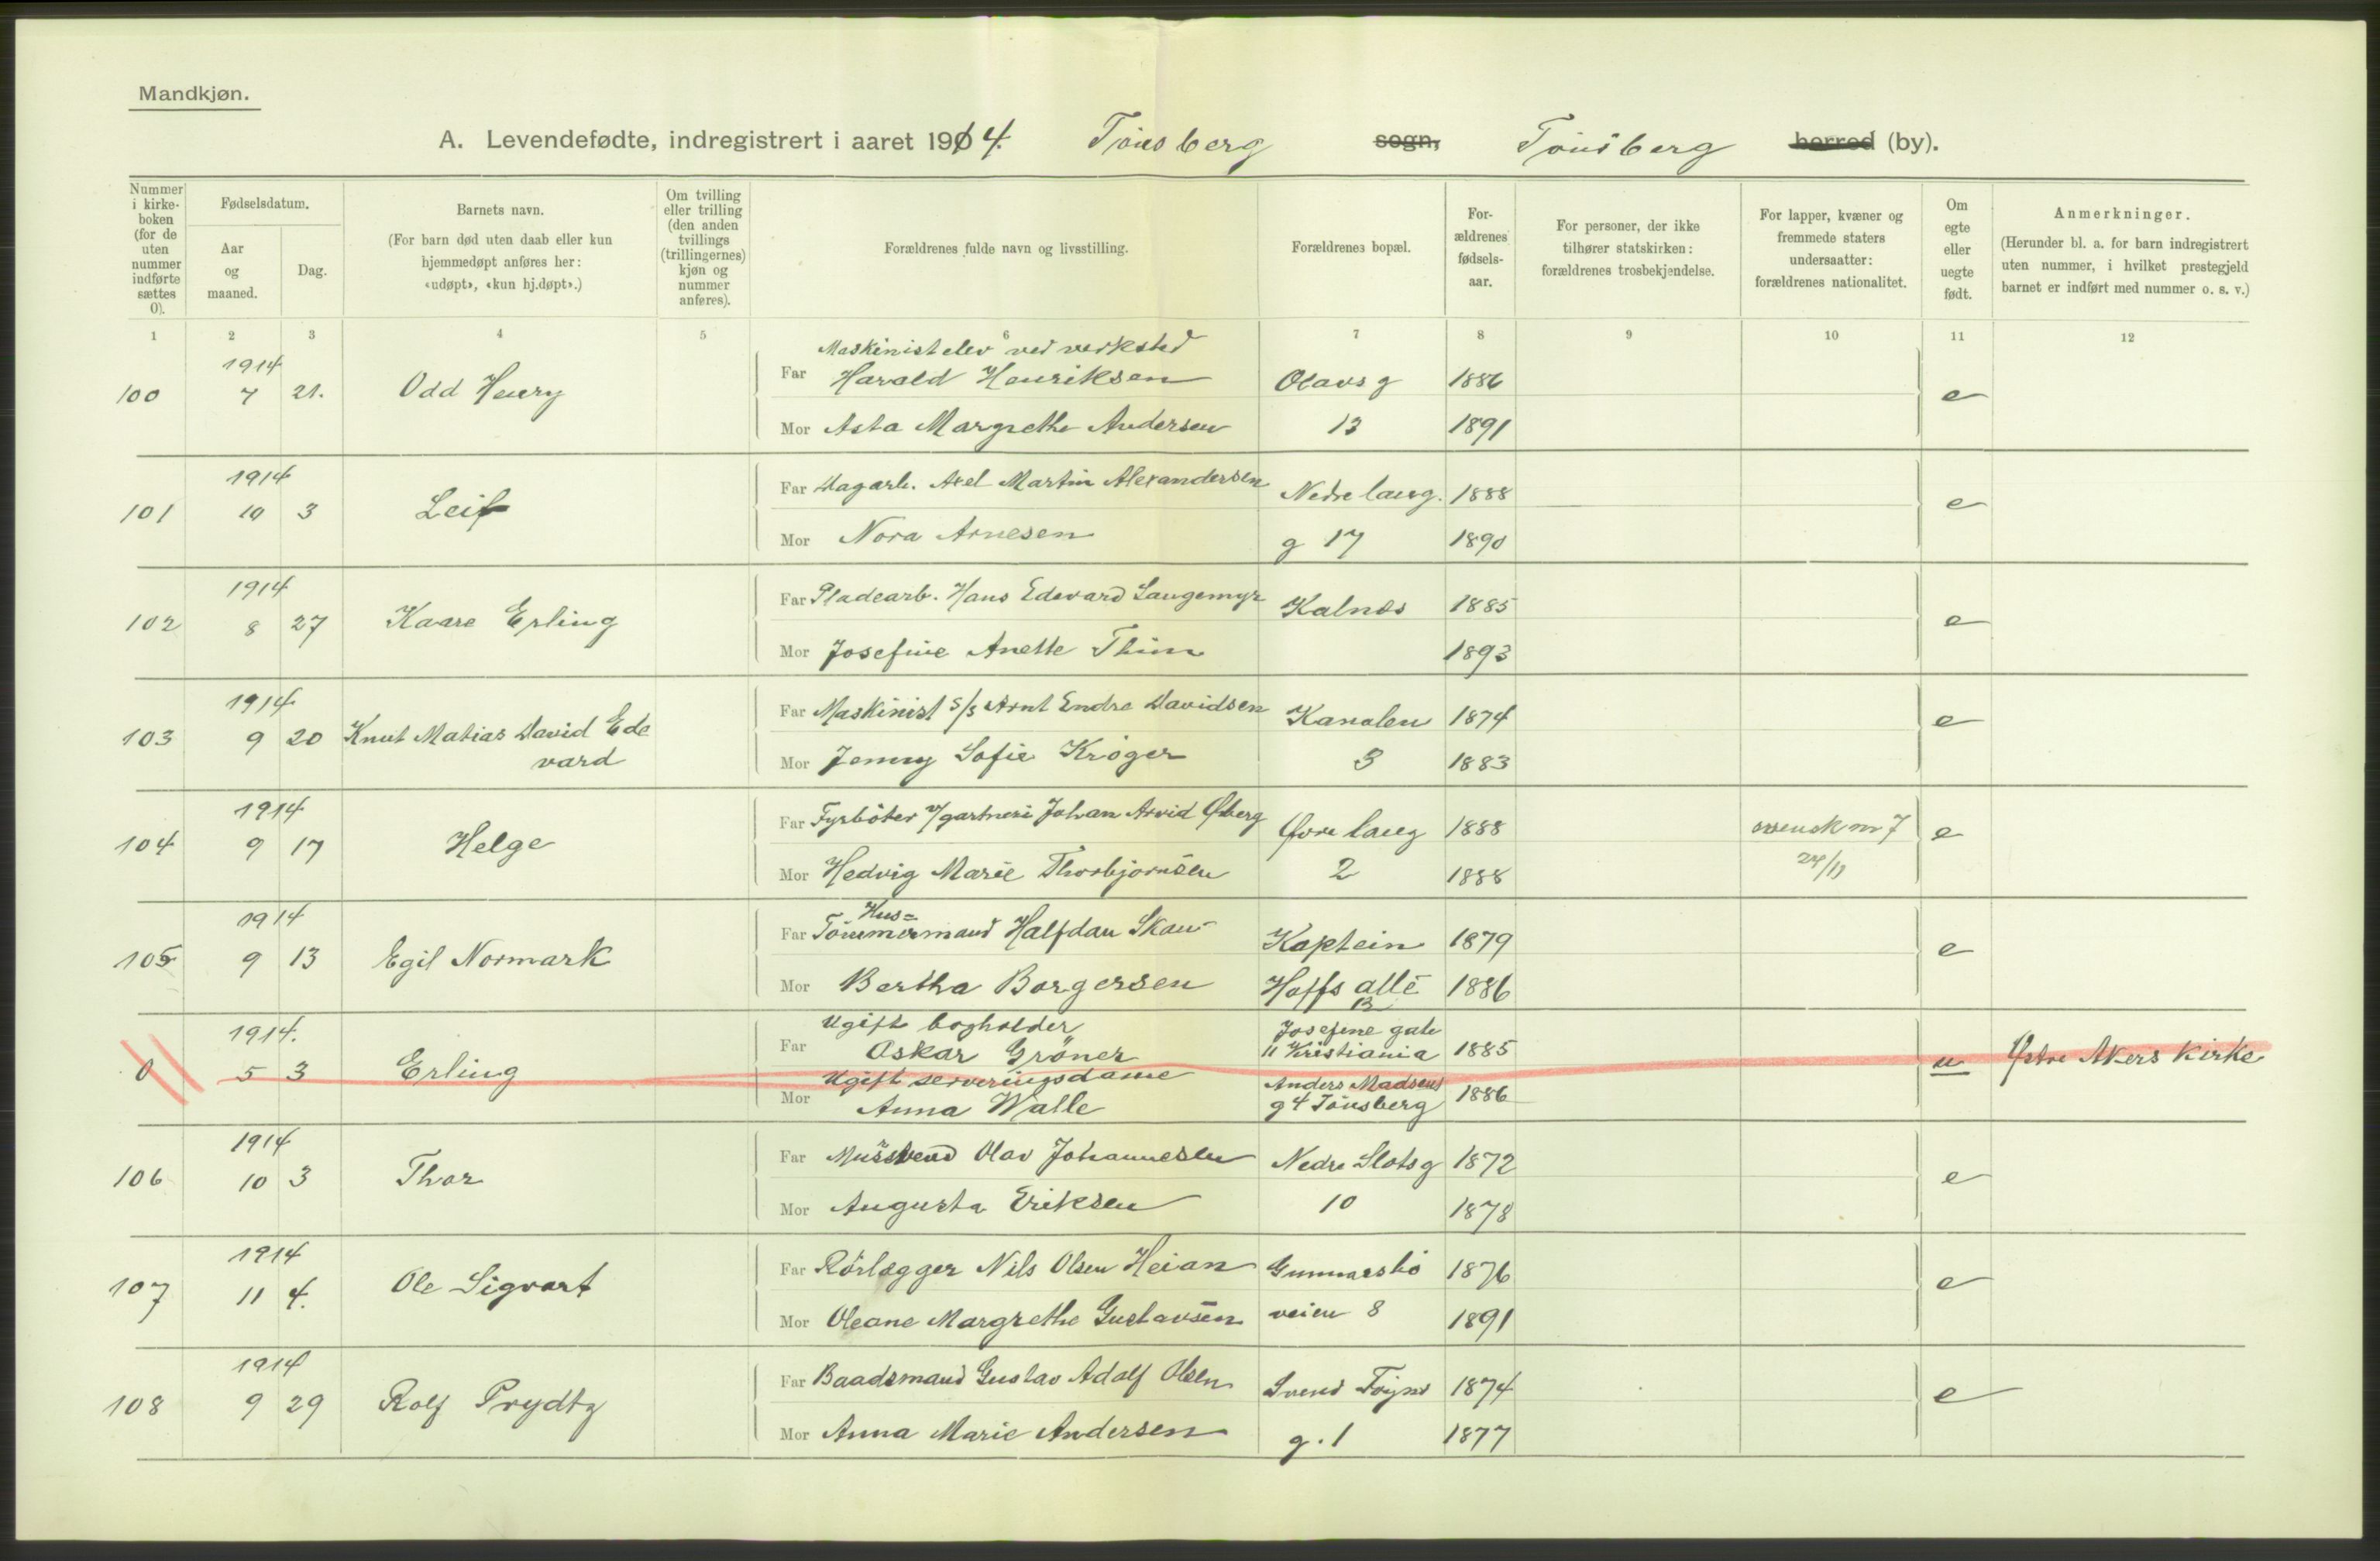 Mandkjøn.
A. Levendefødte, indregistrert i aaret 1914. Tönsberg sogn, Tönsberg herred (by).
Nummer i kirke-boken (for de uten nummer indførte sættes 0).
Fødselsdatum.
Aar og maaned.
Dag.
Barnets navn.
(For barn død uten daab eller kun hjemmedøpt anføres her: «udøpt», «kun hj.døpt».)
Om tvilling eller trilling (den anden tvillings (trillingernes) kjøn og nummer anføres).
Forældrenes fulde navn og livsstilling.
Forældrenes bopæl.
For-ældrenes fødsels-aar.
For personer, der ikke tilhører statskirken: forældrenes trosbekjendelse.
For lapper, kvæner og fremmede staters undersaatter: forældrenes nationalitet.
Om egte eller uegte født.
Anmerkninger.
(Herunder bl. a. for barn indregistrert uten nummer, i hvilket prestegjeld barnet er indført med nummer o. s. v.)
1 2 3 4 5 6 7 8 9 10 11 12
1914 Maskinistelev ved verksted
100 7 21. Odd Henry Far Harald Henriksen Olavsg 1886 e
Mor Asta Margrethe Andersen 13 1891
1914
101 10 3 Leif Far Dagarb. Axel Martin Alexandersen Nedre lang. 1888 e
Mor Nora Arnesen g 17 1890
1914
102 8 27 Kaare Erling Far Pladearb. Hans Edevard Langemyr Kalnes 1885 e
Mor Josefine Anette Thim 1893
1914
103 9 20 Knut Matias David Ede Far Maskinist S/S Arnt Endre Davidsen Kanalen 1874 e
vard Mor Jenny Sofie Kröger 3 1883
1914
104 9 17 Helge Far Fyrböter v/gartneri Johan Arvid Øberg Øvre lang 1888 svensk nr 7 e
Mor Hedvig Marie Thorbjornsen 2 1888 24/11
1914 Hus=
105 9 13 Egil Normark Far Tömmermand Halfdan Skau Kaptein 1879 e
Mor Bertha Borgersen Hoffs alle 1886
13
1914. Ugift bogholder Josefine gate
0 5 3 Erling Far Oskar Gröner 11 Kristiania 1885 u Østre Akers Kirke
Ugift serveringsdame Anders Madsens
Mor Anna Walle g 4 Tönsberg 1886
1914
106 10 3 Thor Far Mursvend Olav Johannesen Nedre Slotsg 1872 e
Mor Augusta Eriksen 10 1878
1914
107 11 4. Ole Sigvart Far Rörlægger Nils Olsen Heian Gunnarsbö 1876 e
Mor Oleane Margrethe Gustavsen veien 8 1891
1914
108 9 29 Rolf Prydtz Far Baadsmand Gustav Adolf Olsen Svend Foyns 1874 e
Mor Anna Marie Andersen g. 1 1877